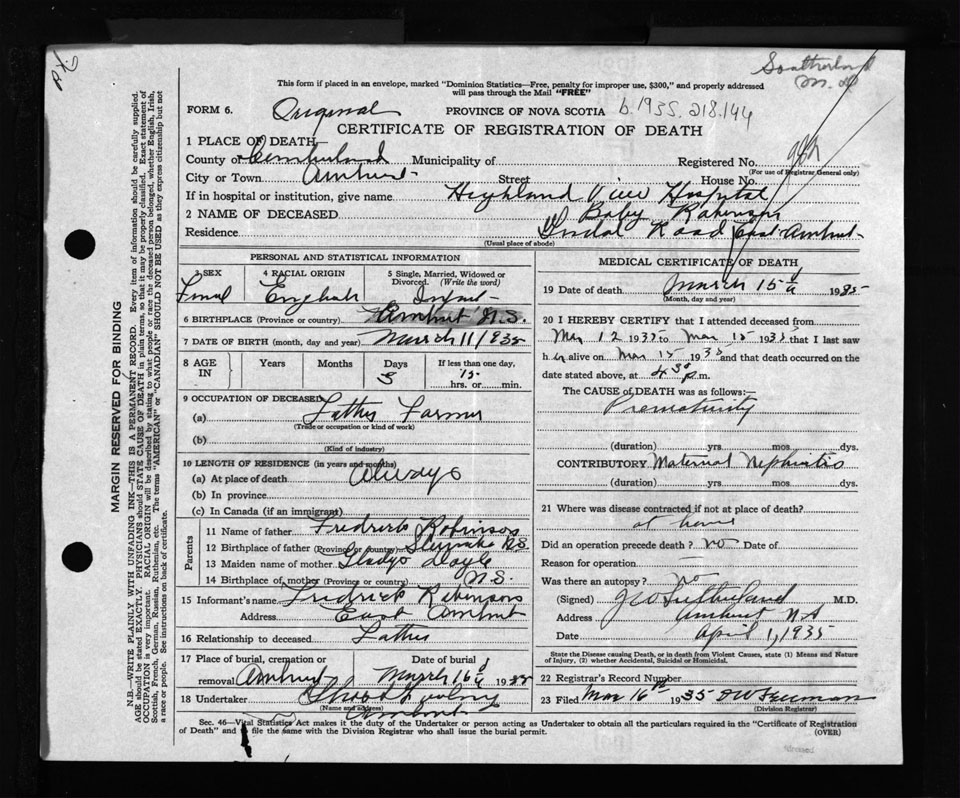 Sutherland
M.D.
This form if placed in an envelope, marked "Dominion Statistics—Free, penalty for improper use, $300," and properly addressed
will pass through the Mail "FREE"
FORM 6. Original PROVINCE OF NOVA SCOTIA b.1935.218.144
CERTIFICATE OF REGISTRATION OF DEATH
1 PLACE OF DEATH—
County of Cumberland Municipality of Registered No.
(For use of Registrar General only)
City or Town Amherst Street House No.
If in hospital or institution, give name Highland View Hospital
2 NAME OF DECEASED Baby Robinson
Residence Road East Amherst
(Usual place of abode)
PERSONAL AND STATISTICAL INFORMATION
3 SEX 4 RACIAL ORIGIN 5 Single, Married, Widowed or
Divorced. (Write the word)
Femal English Infant
6 BIRTHPLACE (Province or country) Amherst N.S.
7 DATE OF BIRTH (month, day and year) March 11/1935
8 AGE IN Years Months Days If less than one day,
3 hrs. or min.
9 OCCUPATION OF DECEASED
(a) Father Farmer
(Trade or occupation or kind of work)
(b)
(Kind of industry)
10 LENGTH OF RESIDENCE (in years and months)
(a) At place of death Always
(b) In province
(c) In Canada (if an immigrant)
Parents
11 Name of father Fredrick Robinson
12 Birthplace of father (Province or country) N.S.
13 Maiden name of mother Gladys Doyle
14 Birthplace of mother (Province or country) N.S.
15 Informant's name Fredrick Robinson
Address East Amherst
16 Relationship to deceased Father
17 Place of burial, cremation or Date of burial
removal Amherst March 16 1935
18 Undertaker
(Name and address)
Amherst
MEDICAL CERTIFICATE OF DEATH
19 Date of death March 15 1935
(Month, day and year)
20 I HEREBY CERTIFY that I attended deceased from
Mar 12 1935 to Mar 15 1935 that I last saw
h er alive on Mar 15 1935 and that death occurred on
date stated above, at 4.30 p.m.
The CAUSE of DEATH was as follows:—
Prematurity
(duration) yrs mos dys.
CONTRIBUTORY Maternal Nephritis
(duration) yrs. mos. dys.
21 Where was disease contracted if not at place of death?
at home
Did an operation precede death? no Date of
Reason for operation
Was there an autopsy? no
(Signed) J W Sutherland M.D.
Address Amherst NS
Date April 1, 1935
State the Disease causing Death, or in death from Violent Causes, state (1) Means and Nature
of Injury, (2) whether Accidental, Suicidal or Homicidal.
22 Registrar's Record Number
23 Filed Mar 16th 1935
(Division Registrar)
Sec. 46—Vital Statistics Act makes it the duty of the Undertaker or person acting as Undertaker to obtain all the particulars required in the "Certificate of Registration
of Death" and to file the same with the Division Registrar who shall issue the burial permit. (OVER)
MARGIN RESERVED FOR BINDING
N.B.—WRITE PLAINLY WITH UNFADING INK—THIS IS A PERMANENT RECORD. Every item of information should be carefully supplied.
AGE should be stated EXACTLY. PHYSICIANS should STATE CAUSE OF DEATH in plain terms, so that it may be properly classified. Exact statement of
OCCUPATION is very important. RACIAL ORIGIN will be described by stating to what people or race the deceased person belonged, whether English, Irish,
Scottish, French, German, Russian, Ruthenian, etc. The terms "AMERICAN" or "CANADIAN" SHOULD NOT BE USED as they express citizenship but not
a race or people. See instructions on back of certificate.